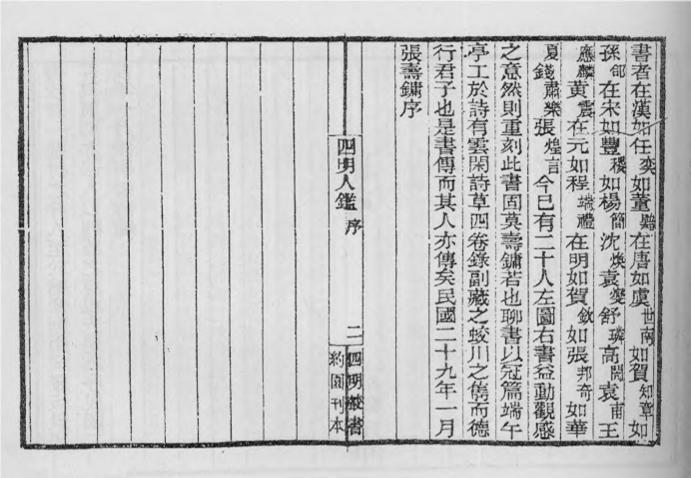 書者在漢如任奕如董黯在唐如虞世南如賀知章如
孫郃在宋如豐稷如楊簡沈煥袁燮舒璘高閌袁甫王
應麟黃震在元如程端禮在明如賀欽如張邦奇如華
夏錢肅樂張煌言今已有二十人左圖右書益動觀感
之意然則重刻此書固莫壽鏞若也聊書以冠篇端午
亭工於詩有雲閑詩草四卷錄副藏之蛟川之雋而德
行君子也是書傳而其人亦傳矣民國二十九年一月
張壽鏞序
四明人鑑 序 二
四明叢書
約園刊本